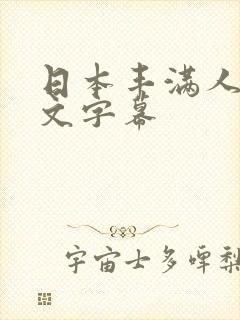 日本丰满人
文字幕
宇宙士多啤梨